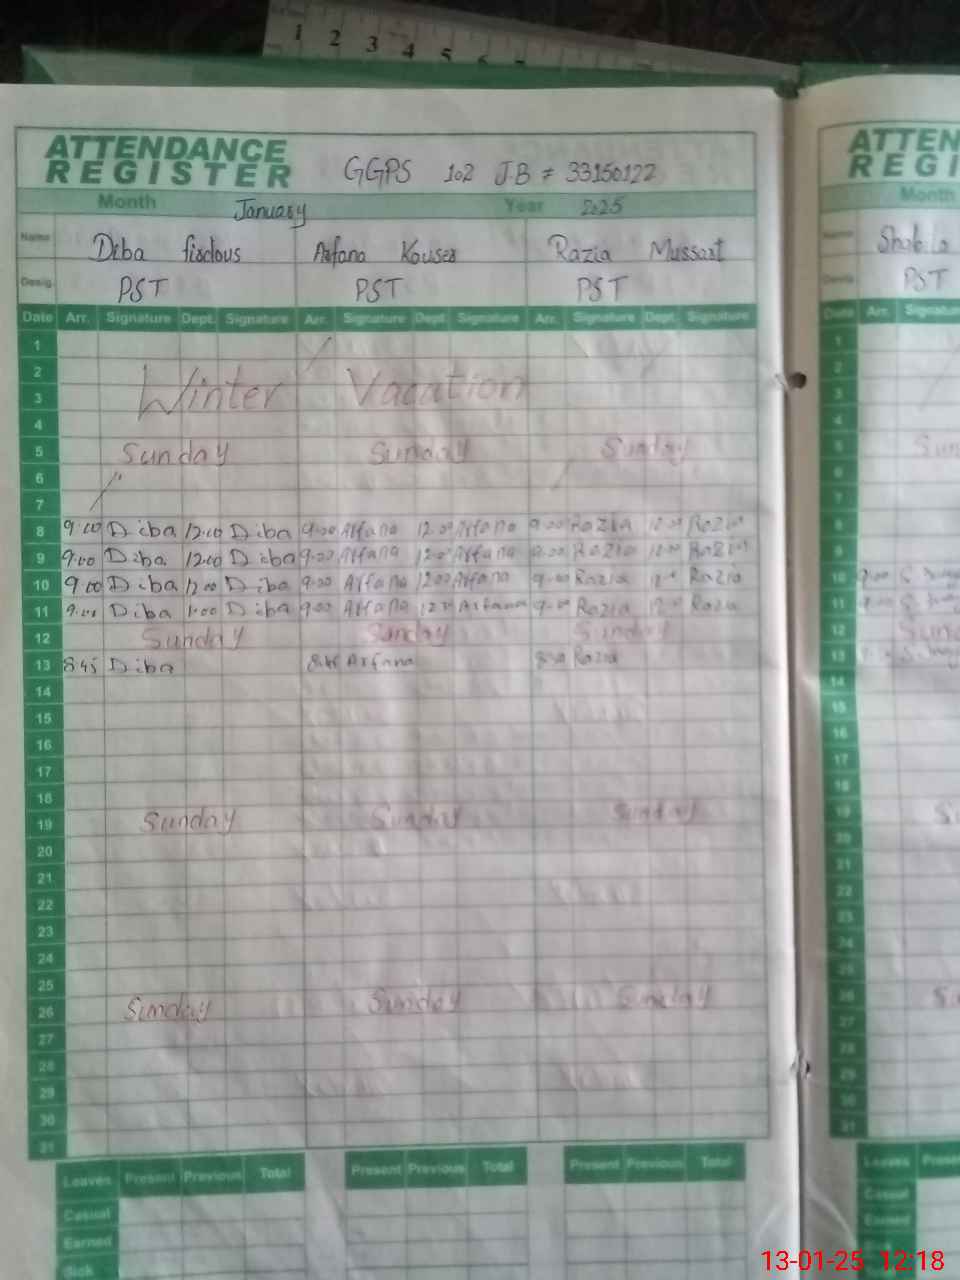 1 2 3 4 5 6 7
ATTENDANCE
REGISTER
GGPS 102 J.B # 33150122
Month January Year 2025
Name Diba firdous Arfana Kouser Razia Mussart
Desig. PST PST PST
Date Arr. Signature Dept. Signature Arr. Signature Dept. Signature Arr. Signature Dept. Signature
1
2
Winter Vacation
3
4
5 Sunday Sunday Sunday
6
7
8 9:00 Diba 12:00 Diba 9:00 Arfana 12:00 Arfana 9:00 Razia 12:00 Razia
9 9:00 Diba 12:00 Diba 9:00 Arfana 12:00 Arfana 9:00 Razia 12:00 Razia
10 9:00 Diba 12:00 Diba 9:00 Arfana 12:00 Arfana 9:00 Razia Razia
11 9:00 Diba Diba 9:00 Arfana Arfana 9:00 Razia Razia
12 Sunday Sunday Sunday
13 8:45 Diba 8:45 Arfana Razia
14
15
16
17
18
19 Sunday Sunday Sunday
20
21
22
23
24
25
26 Sunday Sunday Sunday
27
28
29
30
31
Leaves Present Previous Total Present Previous Total Present Previous Total
Casual
Earned
Sick
ATTEN
REGI
Month
PST
Date Arr. Signatu
1
2
3
4
5 Sun
6
7
8
9
10
11
12 Sund
13
14
15
16
17
18
19 S
20
21
22
23
24
25
26 S
27
28
29
30
31
Leaves Presen
Casual
Earned
13-01-25 12:18